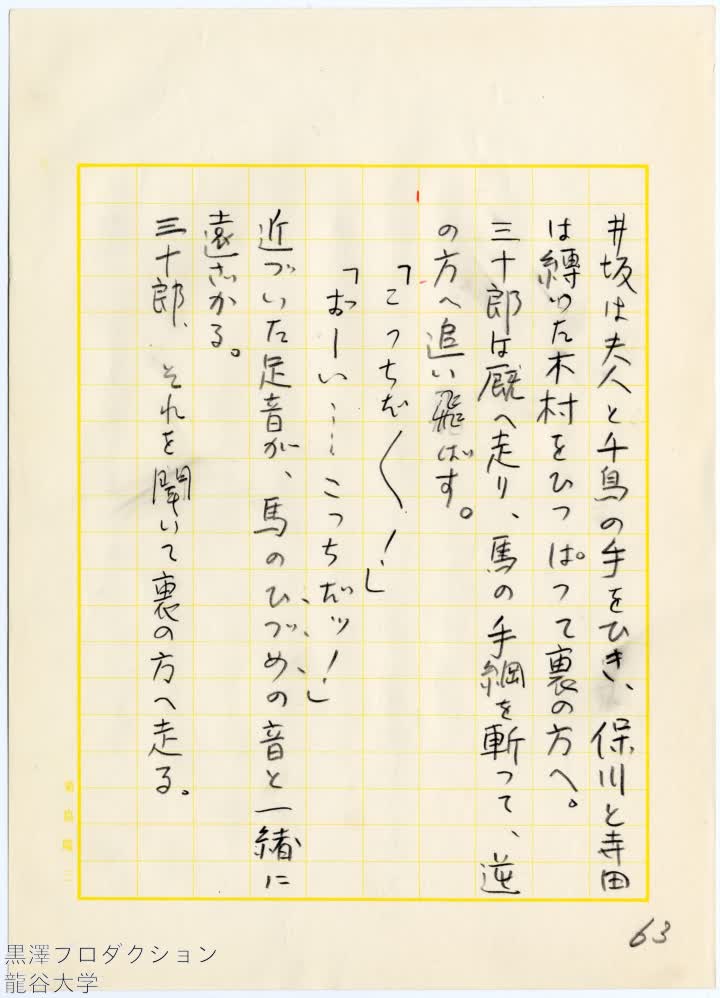 井坂は夫人と千鳥の手をひき、保川と寺田
は縛った木村をひっぱって裏の方へ。
三十郎は厩へ走り、馬の手綱を斬って、逆
の方へ追い飛ばす。
「こっちだ〱！」
「おーい……こっちだッ！」
近づいた足音が、馬のひづめの音と一緒に
遠ざかる。
三十郎、それを聞いて裏の方へ走る。
63
黒澤プロダクション
龍谷大学